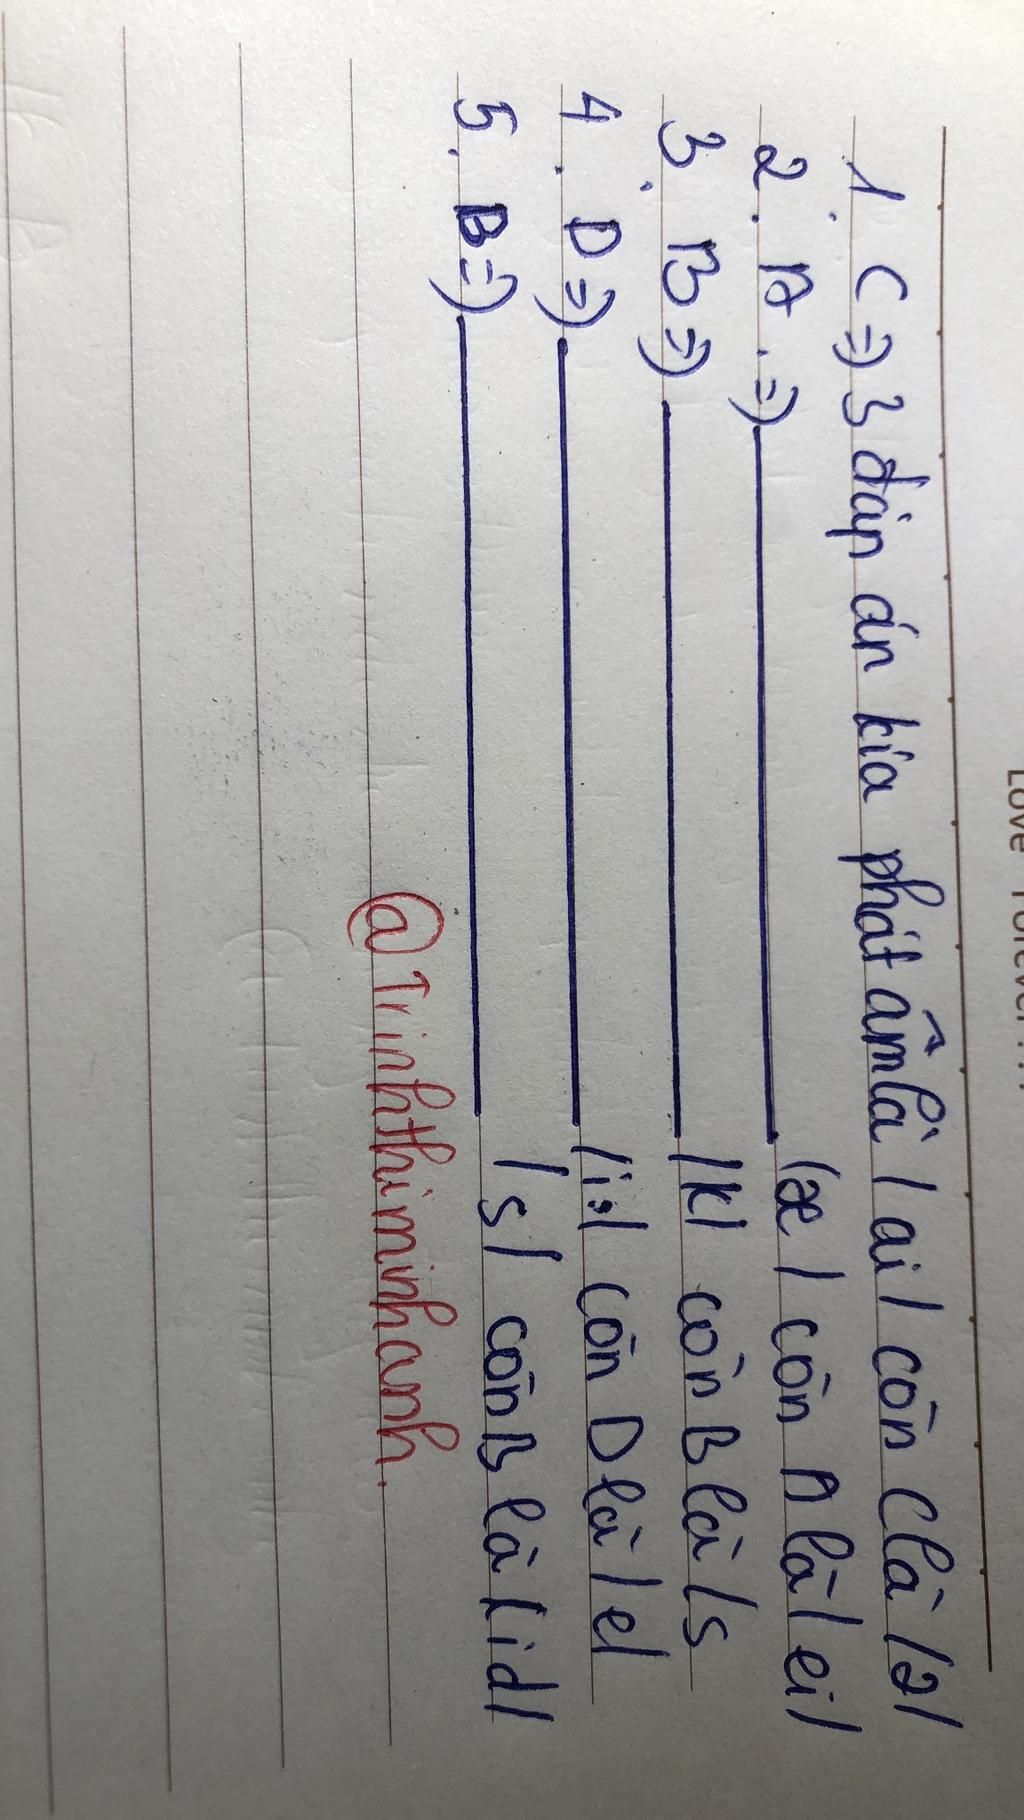 Love Forever!!!
1. C => 3 đáp án kia phát âm là / ai / còn C là /ə/
2. A. => ——— /æ / còn A là / ei /
3. B => ——— /k/ còn B là /s
4. D => ——— /i:/ còn D là / e/
5. B => ——— / s / còn B là / id/
@Trinhthiminhanh.